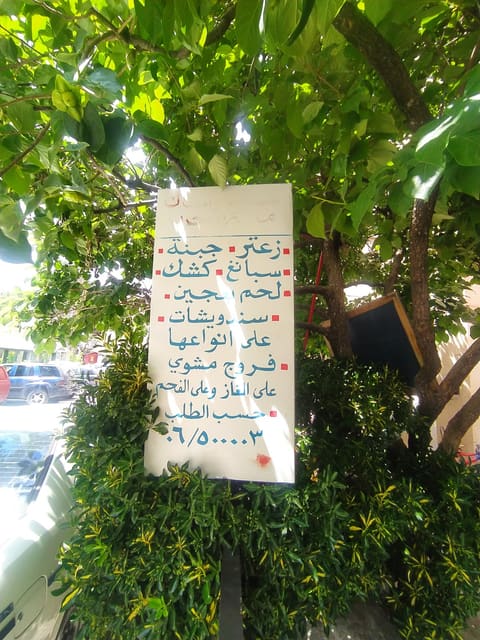 زعتر. جبنة.
سبانغ. كشك.
لحم بعجين.
سندويشات.
على انواعها
فروج مشوي
على الغاز وعلى الفحم
حسب الطلب
٠٦/٥٠٠٠٠٣